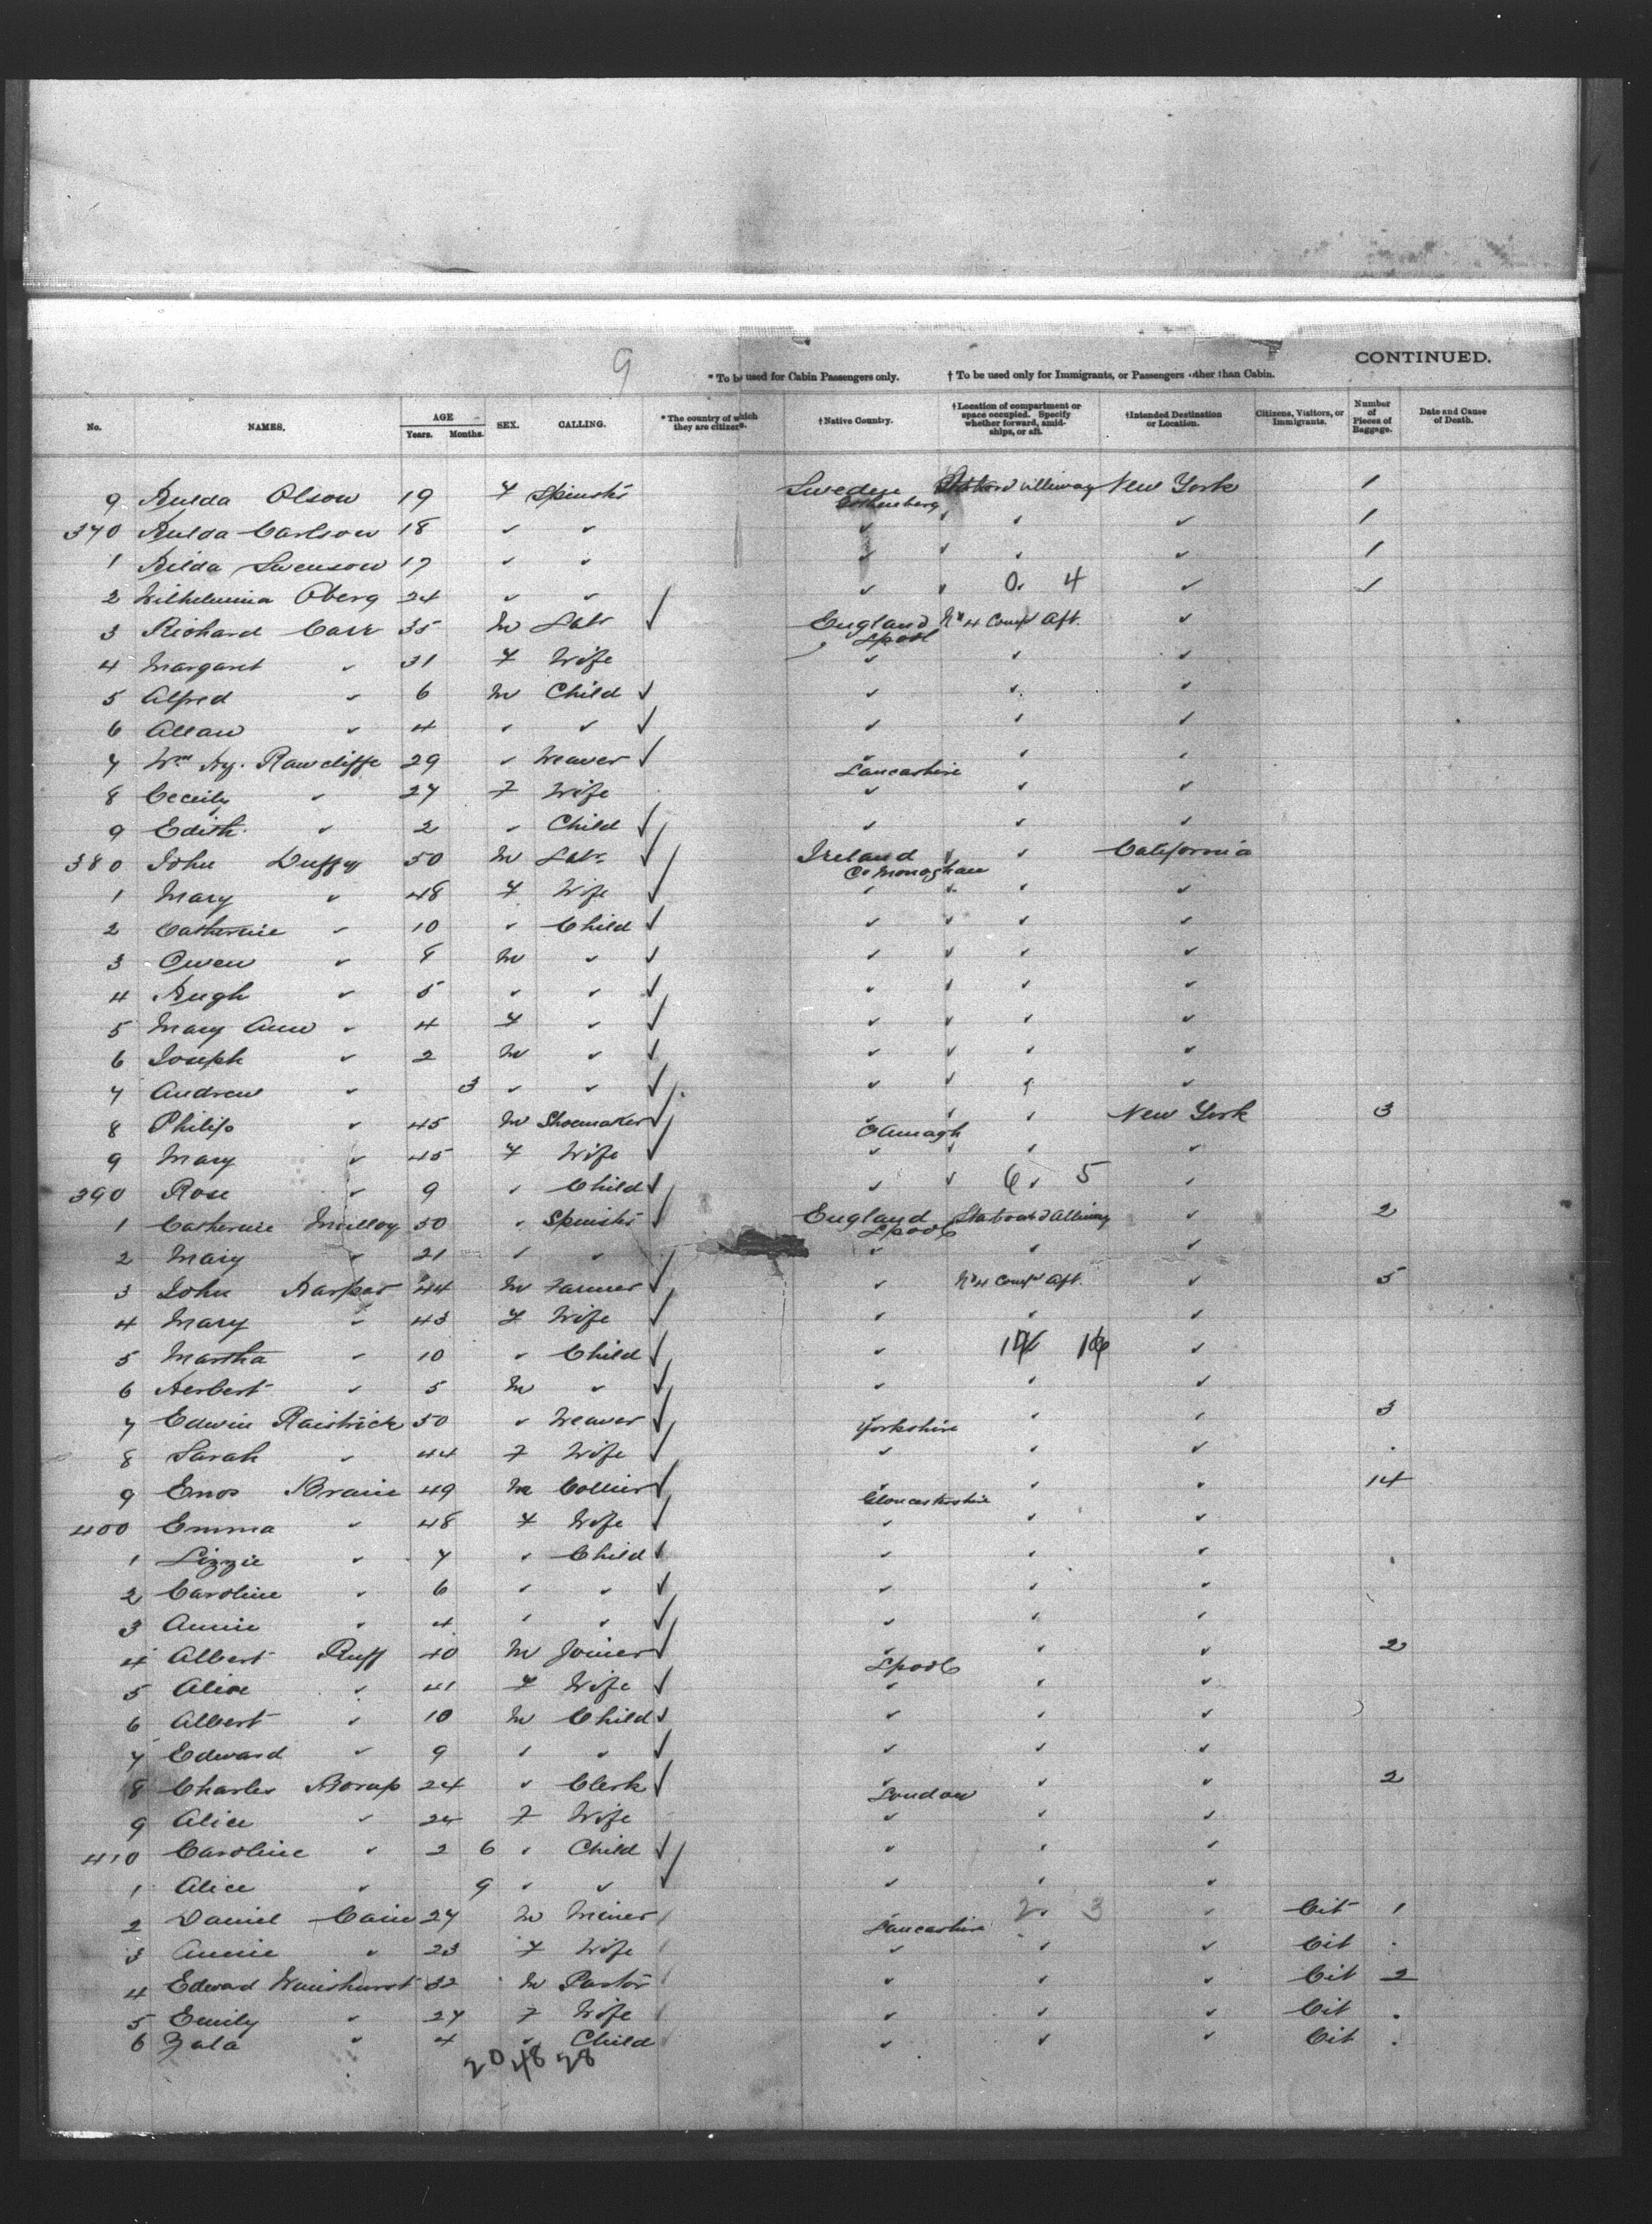 9
CONTINUED.
* To be used for Cabin Passengers only. † To be used only for Immigrants, or Passengers other than Cabin.
No. NAMES. AGE Years. Months. SEX. CALLING. * The country of which they are citizens. †Native Country. †Location of compartment or space occupied. Specify whether forward, amidships, or aft. †Intended Destination or Location. Citizens, Visitors, or Immigrants. Number of Pieces of Baggage. Date and Cause of Death.
9 Hulda Olson 19 F Spinster Sweden Gothenberg New York 1
370 Hulda Carlson 18 " " " " " " 1
1 Hilda Swenson 17 " " " " " " 1
2 Wilhelmina Oberg 24 " " " " 0. 4 " 1
3 Richard Carr 35 M Labr England Lpool No 4 Compt Aft. "
4 Margaret " 31 F Wife " " "
5 Alfred " 6 M Child " " "
6 Allan " 4 " " " " "
7 Wm Hy. Rawcliffe 29 " Weaver " Lancashire " "
8 Cecily " 27 F Wife " " "
9 Edith " 2 " Child " " "
380 John Duffy 50 M Labr Ireland Co Monaghan " " California
1 Mary " 48 F Wife " " " "
2 Catherine " 10 " Child " " " "
3 Owen " 8 M " " " " "
4 Hugh " 5 " " " " " "
5 Mary Ann " 4 F " " " " "
6 Joseph " 2 M " " " " "
7 Andrew " 3 " " " " " "
8 Philip " 45 M Shoemaker " " " New York 3
9 Mary " 45 F Wife " " " "
390 Rose " 9 " Child " " 6. 5 "
1 Catherine Mulloy 50 " Spinster England Lpool Starboard Alleway " 2
2 Mary " 21 " " " " "
3 John Harper 44 M Farmer " No 4 Compt Aft. " 5
4 Mary " 43 F Wife " " "
5 Martha " 10 " Child " "
6 Herbert " 5 M " " " "
7 Edwin Raistrick 50 " Weaver " Yorkshire " " 3
8 Sarah " 44 F Wife " " "
9 Enos Brain 49 M Collier " Gloucestershire " " 14
400 Emma " 48 F Wife " " "
1 Lizzie " 7 " Child " " "
2 Caroline " 6 " " " " "
3 Annie " 4 " " " " "
4 Albert Ruff 40 M Joiner " Lpool " " 2
5 Alice " 41 F Wife " " "
6 Albert " 10 M Child " " "
7 Edward " 9 " " " " "
8 Charles Borup 24 " Clerk " London " " 2
9 Alice " 24 F Wife " " "
410 Caroline " 2 6 " Child " " "
1 Alice " 9 " " " " "
2 Daniel Cain 27 M Miner " Lancashire 2. 3 " Cit 1
3 Annie " 23 F Wife " " " Cit
4 Edward 32 M Pastor " " " Cit 2
5 Emily " 27 F Wife " " " Cit
6 Zala " 4 " Child " " " Cit
20 48 28